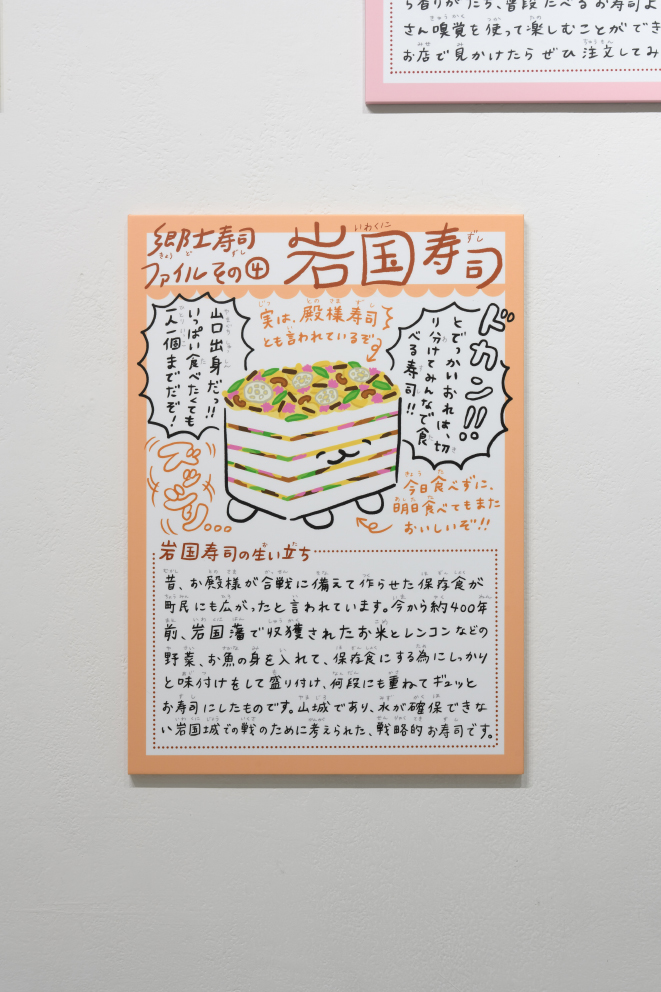 ら香りがしたら、普段たべるお寿司よ
さん嗅覚を使って楽しむことができ
お店で見かけたらぜひ注文してみ
郷土寿司
ファイルその④
岩国寿司
実は、殿様寿司
とも言われているぞ
ドカン!!
とでっかいおれは、切
り分けてみんなで食
べる寿司!!
山口出身だっ!!
いっぱい食べたくても
一人一個までだぞ!
ズッシリ...
今日食べずに、
明日食べてもまた
おいしいぞ!!
岩国寿司の生い立ち
昔、お殿様が合戦に備えて作らせた保存食が
町民にも広がったと言われています。今から約400年
前、岩国藩で収獲されたお米とレンコンなどの
野菜、お魚の身を入れて、保存食にする為にしっかり
と味付けをして盛り付け、何段にも重ねてギュッと
お寿司にしたものです。山城であり、水が確保できな
い岩国城での戦のために考えられた、戦略的お寿司です。